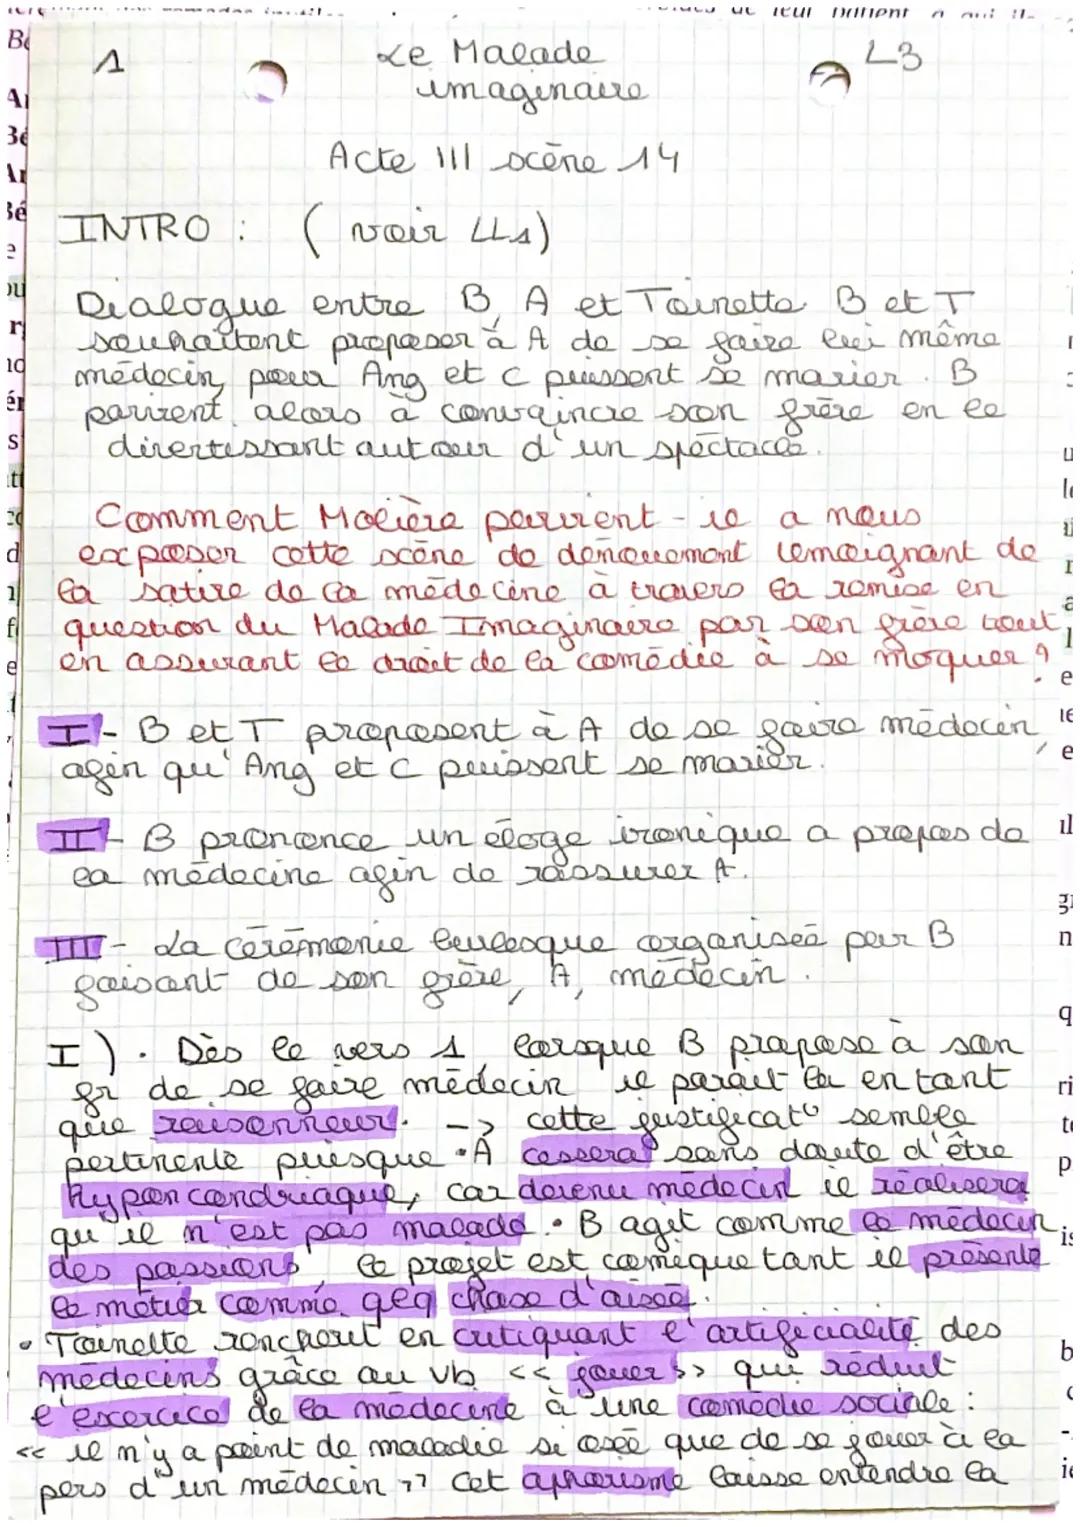 1 Le Malade L3
imaginaire
Acte III scène 14
INTRO : ( voir LL1)
Dialogue entre B, A et Toinette. B et T
souhaitent proposer à A de se faire lui même
médecin, pour Ang et C puissent se marier. B
parvient alors à convaincre son frère en le
divertissant autour d'un spectacle.
Comment Molière parvient-il a nous
exposer cette scène de denouement temoignant de
la satire de la médecine à travers la remise en
question du Malade Imaginaire par son frère tout
en assurant le droit de la comédie à se moquer ?
I- B et T proposent à A de se faire médecin
afin qu'Ang et C puissent se marier.
II- B prononce un éloge ironique a propos de
la médecine afin de rassurer A.
III- La cérémonie burlesque organisée par B
faisant de son frère, A, médecin.
I) • Dès le vers 1, lorsque B propose à son
fr de se faire médecin il parait là en tant
que raisonneur. -> cette justificat° semble
pertinente puisque • A cessera sans doute d'être
hyponcondriaque, car devenu médecin il réalisera
qu'il n'est pas malade. • B agit comme le médecin
des passions le projet est comique tant il présente
le métier comme qlq chose d'aisée.
• Toinette renchérit en critiquant l'artificialité des
médecins grâce au vb << jouer >> qui réduit
l'exercice de la médecine à une comédie sociale :
<< il n'y a point de maladie si osée que de se jouer à la
pers d'un médecin >> Cet aphorisme laisse entendre la